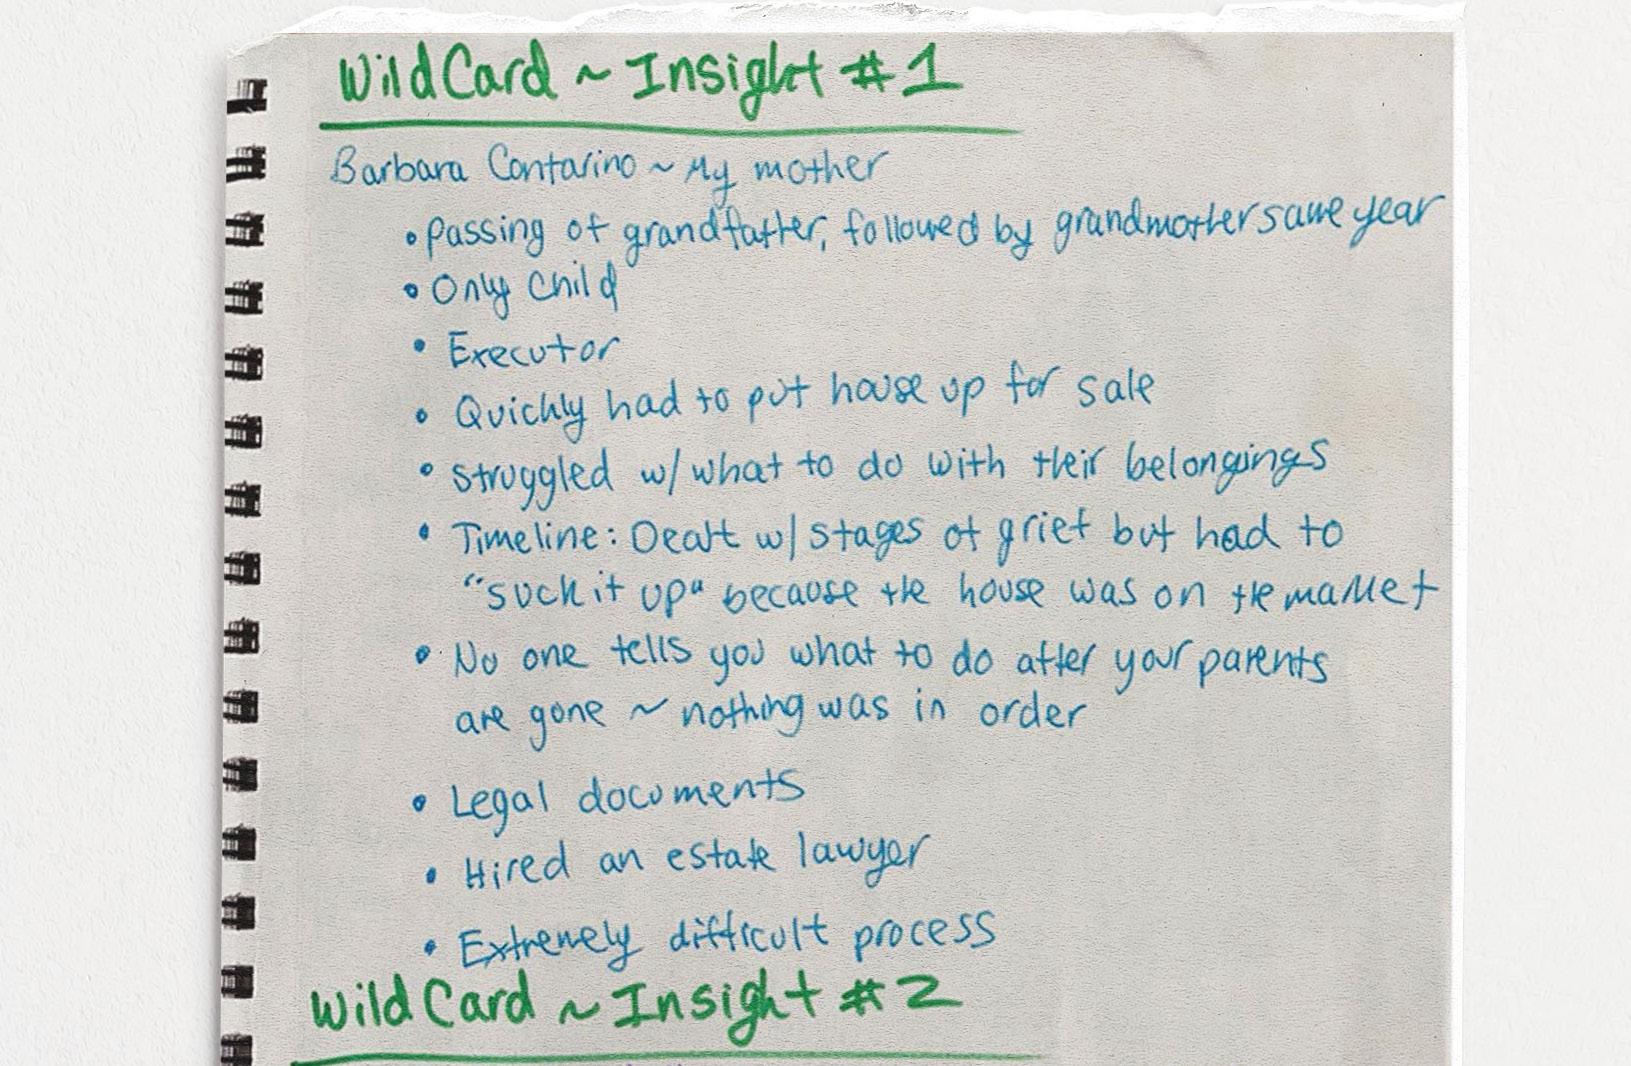 Wild Card ~ Insight #1
Barbara Contarino ~ My mother
• passing of grandfather, followed by grandmother same year
• Only Child
• Executor
• Quickly had to put house up for sale
• struggled w/ what to do with their belongings
• Timeline: Dealt w/ stages of grief but had to
"suck it up" because the house was on the market
• No one tells you what to do after your parents
are gone ~ nothing was in order
• Legal documents
• Hired an estate lawyer
• Extremely difficult process
Wild Card ~ Insight #2